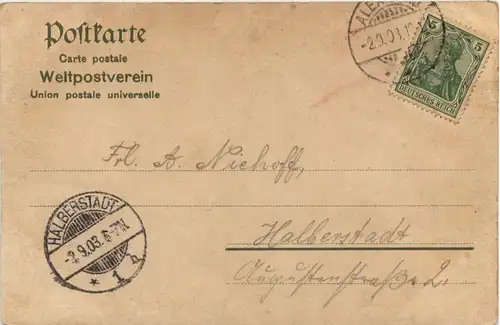 Postkarte
Carte postale
Weltpostverein
Union postale universelle
-2.9.03.
5 5
DEUTSCHES REICH
Frl. A. Niehoff,
HALBERSTADT
-2.9.03. 6-7N
* 1 h
Halberstadt
Augustenstraße 2.